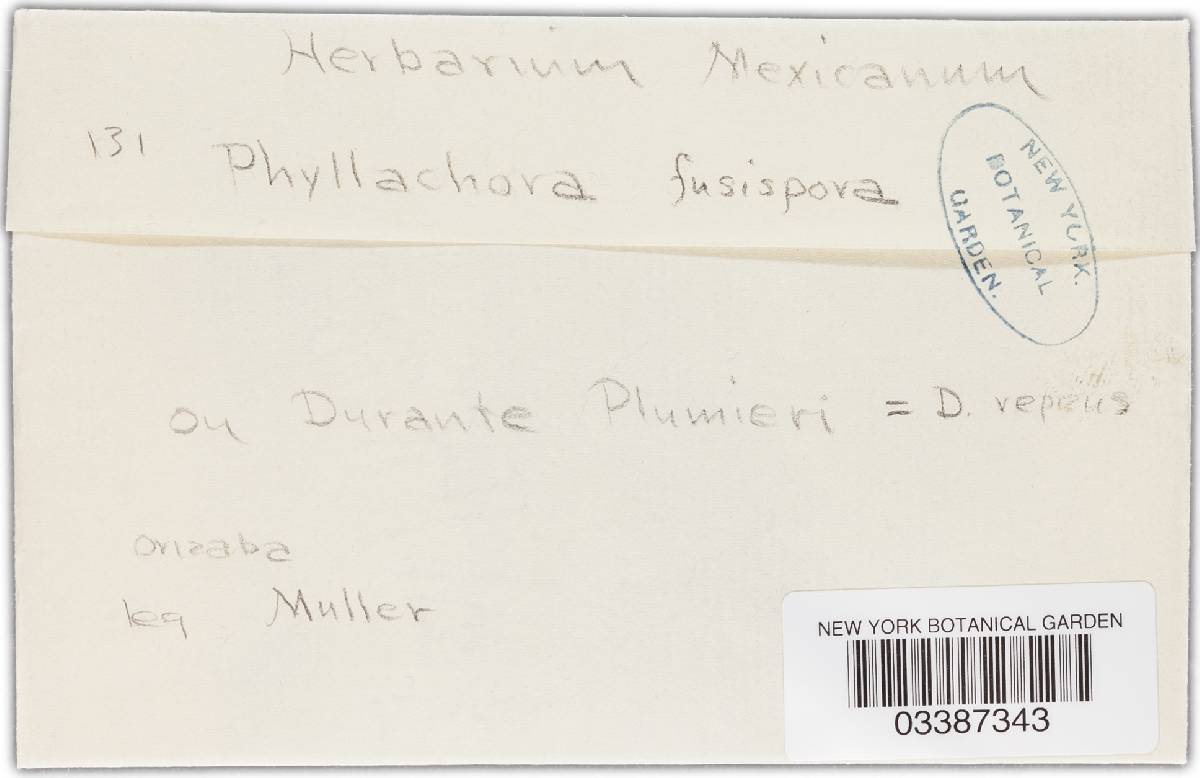 Herbarium Mexicanum
131 Phyllachora fusispora
NEW YORK
BOTANICAL
GARDEN.
on Durante Plumieri = D. repens
Orizaba
leg Muller
NEW YORK BOTANICAL GARDEN
03387343